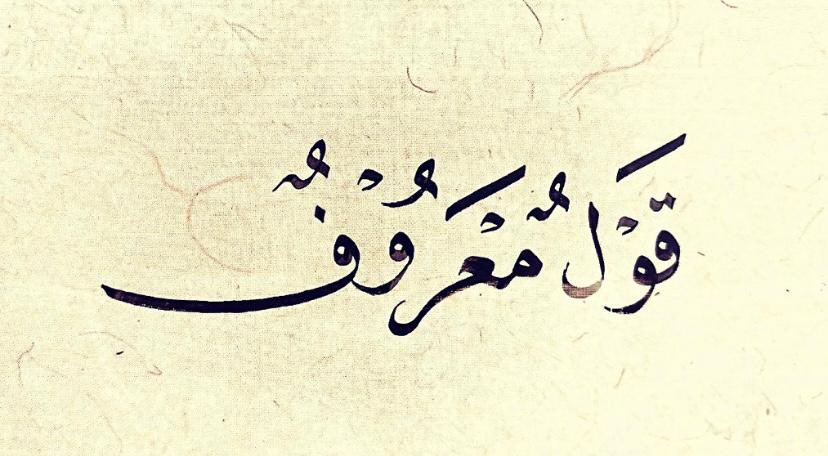 قَوْلٌ مَّعْرُوْفٌ